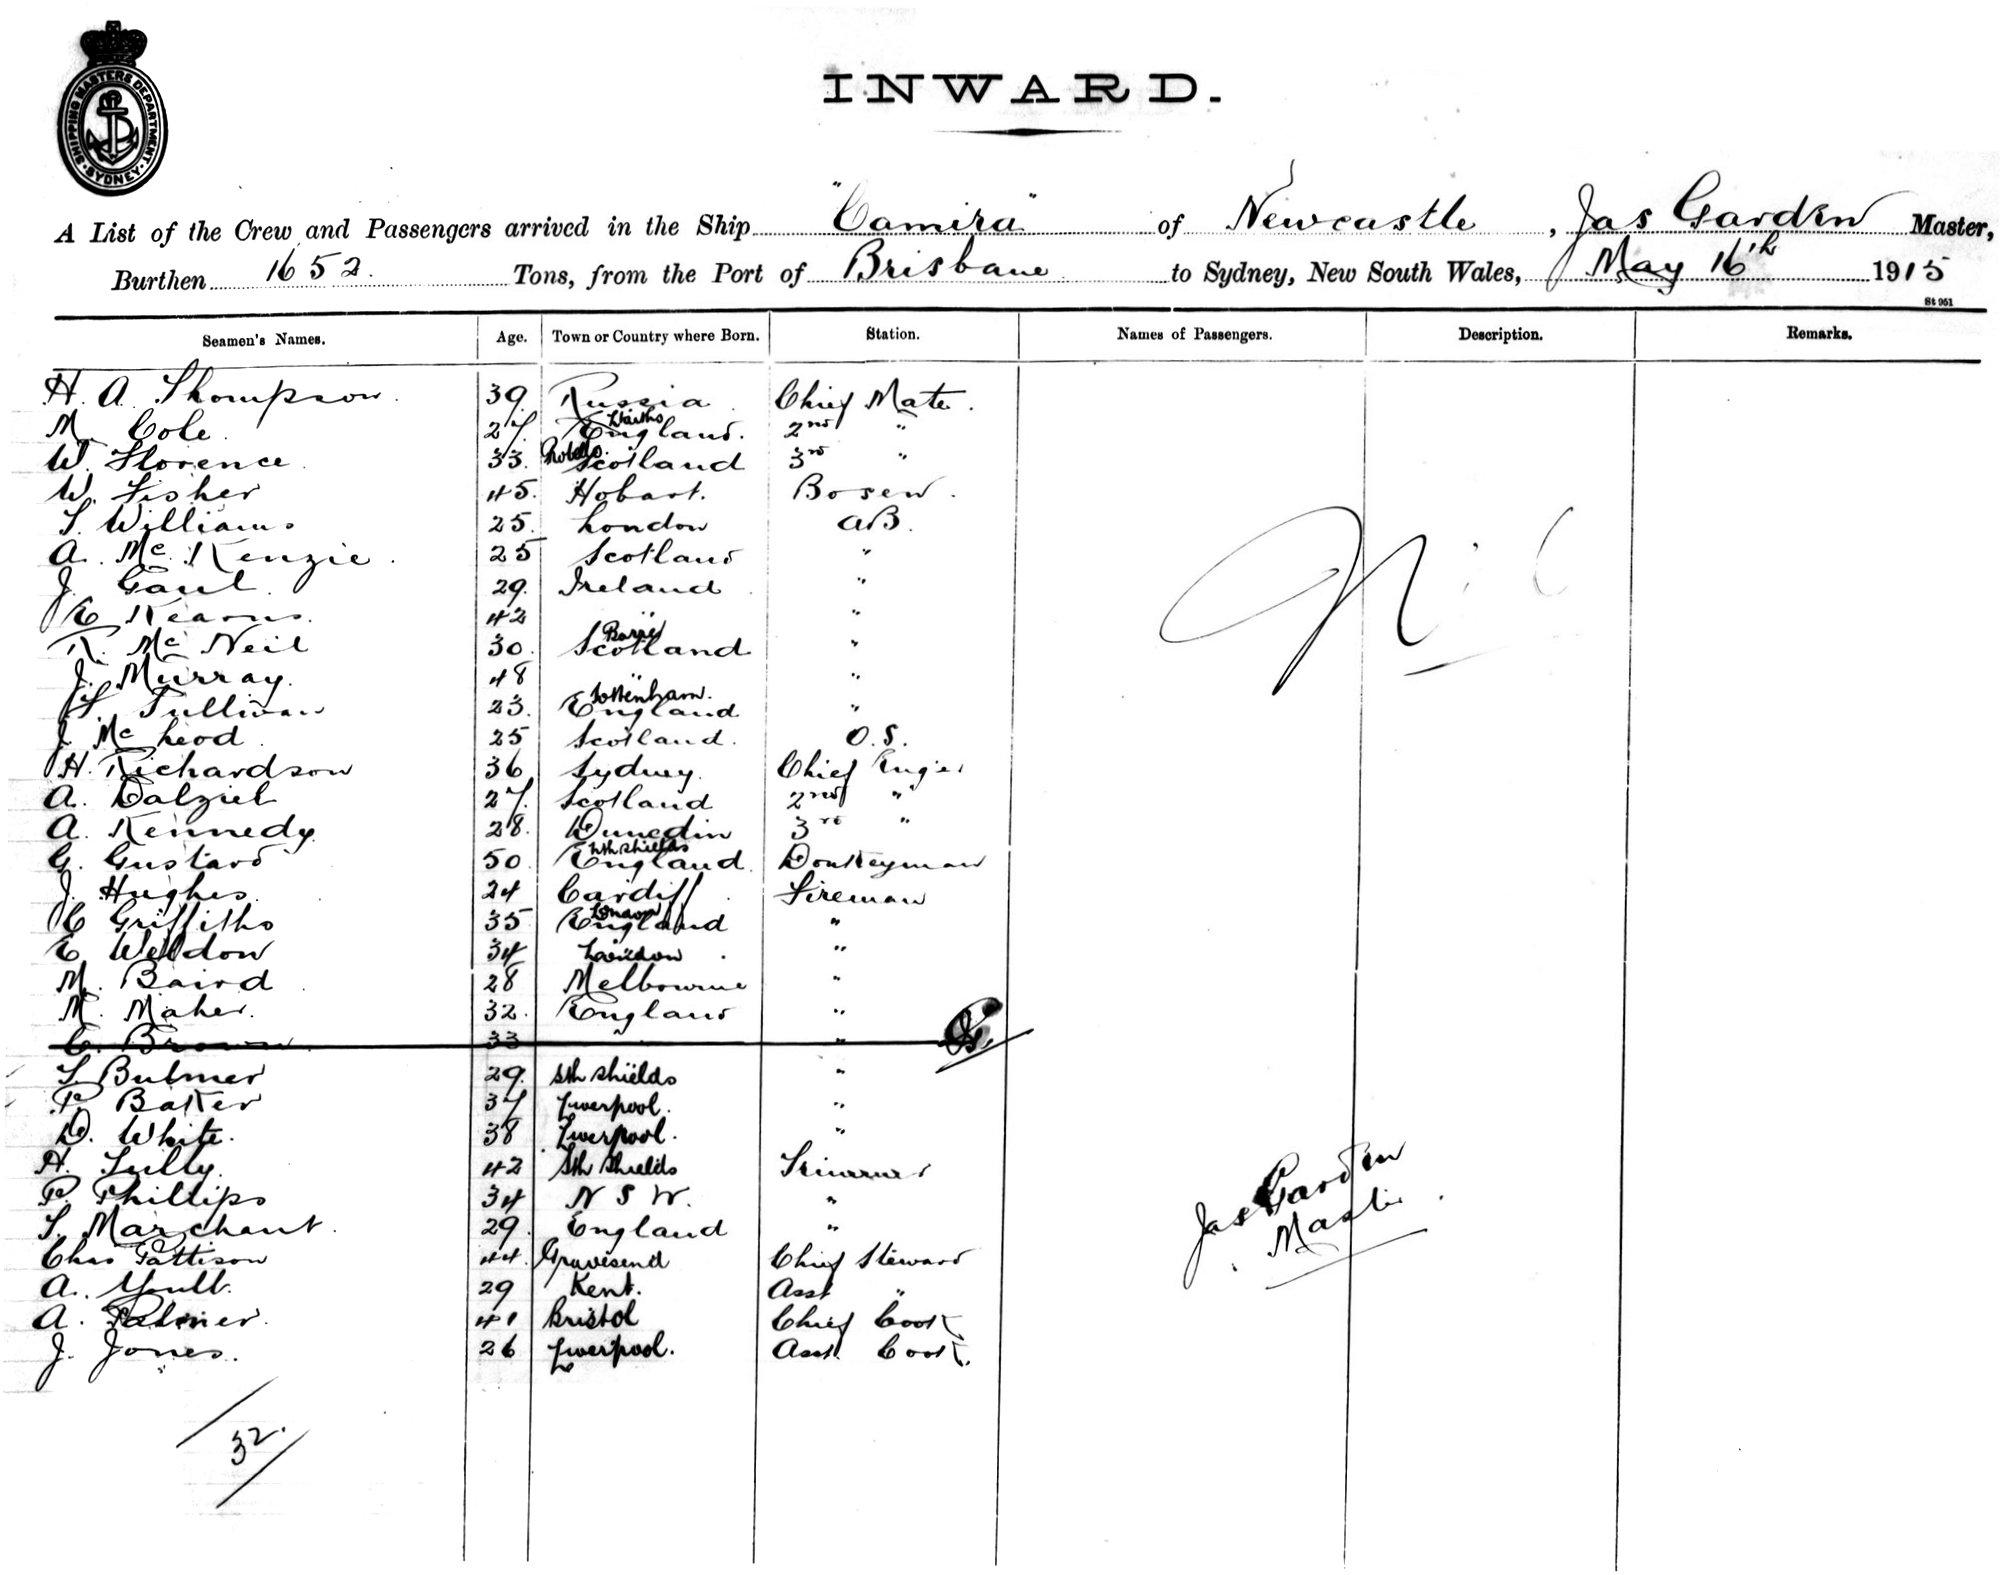 SHIPPING MASTERS DEPARTMENT. SYDNEY
INWARD.
A List of the Crew and Passengers arrived in the Ship "Camira" of Newcastle, Jas Garden Master,
Burthen 1652. Tons, from the Port of Brisbane to Sydney, New South Wales, May 16th 1915
St 951
Seamen's Names. Age. Town or Country where Born. Station. Names of Passengers. Description. Remarks.
H. A. Thompson. 39 Russia Chief Mate.
M. Cole. 27. England. 2nd "
W. Florence 33. Scotland 3rd "
W. Fisher 45. Hobart. Bosen.
S. Williams 25. London AB.
A. McKenzie. 25 Scotland "
J. Gaul 29. Ireland "
E Kearns. 42 " "
R. McNeil 30. Scotland "
J. Murray. 48 " "
Tottenham.
Sullivan 23. England "
J. McLeod 25 Scotland. O.S.
H. Richardson 36 Sydney. Chief Engr
A. Dalziel 27. Scotland 2nd "
A. Kennedy 28. Dunedin 3rd "
Sth Shields
G. Gustard 50 England. Donkeyman
J. Hughes. 24 Cardiff Fireman
London
C Griffiths 35 England "
E Weldon 34 London "
M. Baird 28 Melbourne "
M. Maher. 32. England "
C. Brown 33 " "
S. Bulmer 29. Sth Shields "
P. Baker 37 Liverpool. "
D. White. 38 Liverpool. "
H. Tully. 42 Sth Shields Trimmer
P. Phillips 34 N S W. "
S. Marchant. 29. England "
Chas Pattison 44. Gravesend Chief Steward
A. Youll. 29 Kent. Asst "
A. Palmer. 41 Bristol Chief Cook
J. Jones. 26 Liverpool. Asst. Cook.
Nil
Jas Garden
Master
32.